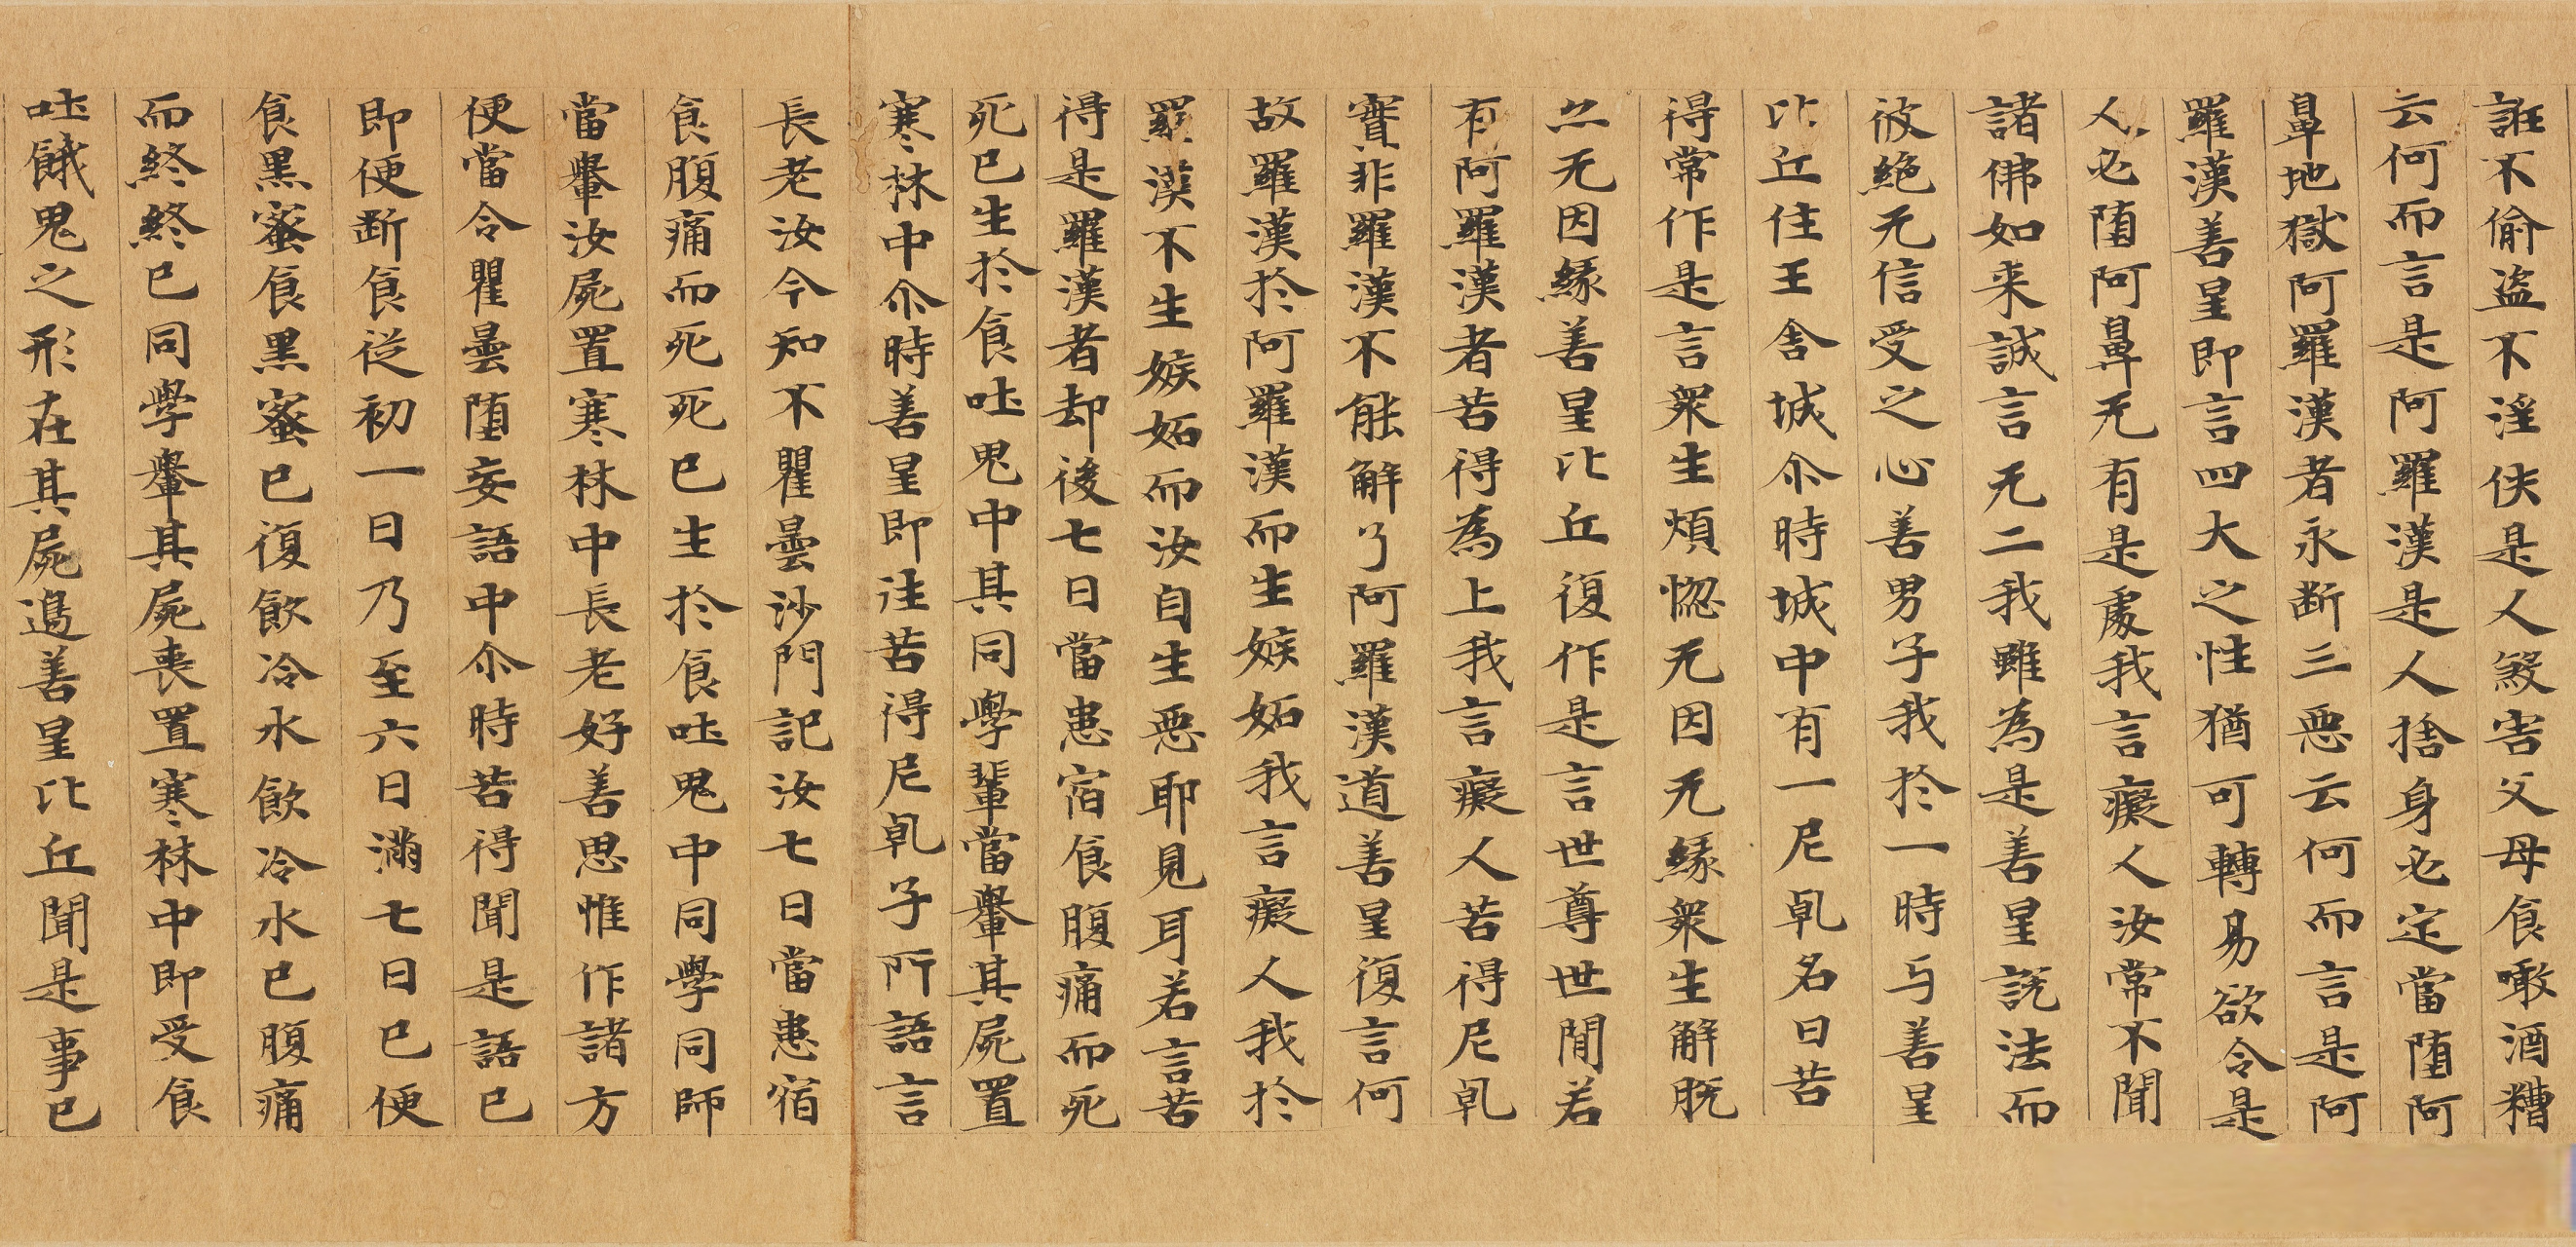 誑不偷盜不淫佚是人煞害父母食噉酒糟
云何而言是阿羅漢是人捨身必定當墮阿
鼻地獄阿羅漢者永断三惡云何而言是阿
羅漢善星即言四大之性猶可轉易欲令是
人必墮阿鼻无有是處我言癡人汝常不聞
諸佛如来誠言无二我雖為是善星說法而
彼絶无信受之心善男子我於一時与善星
比丘住王舍城尒時城中有一尼乹名曰苦
得常作是言衆生煩惚无因无緣衆生解脫
亦无因緣善星比丘復作是言世尊世間若
有阿羅漢者苦得為上我言癡人苦得尼乹
實非羅漢不能解了阿羅漢道善星復言何
故羅漢於阿羅漢而生嫉妬我言癡人我於
羅漢不生嫉妬而汝自生惡耶見耳若言苦
得是羅漢者却後七日當患宿食腹痛而死
死已生於食吐鬼中其同學輩當轝其屍置
寒林中尒時善星即往苦得尼乹子所語言
長老汝今知不瞿曇沙門記汝七日當患宿
食腹痛而死死已生於食吐鬼中同學同師
當轝汝屍置寒林中長老好善思惟作諸方
便當令瞿曇墮妄語中尒時苦得聞是語已
即便断食從初一日乃至六日滿七日已便
食黑蜜食黑蜜已復飲冷水飲冷水已腹痛
而終終已同學轝其屍喪置寒林中即受食
吐餓鬼之形在其屍邊善星比丘聞是事已